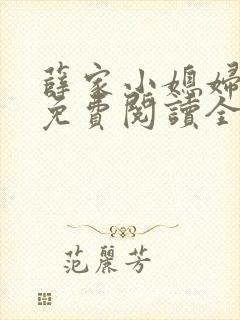 薛家小媳婦
免費閱讀全
范麗芳